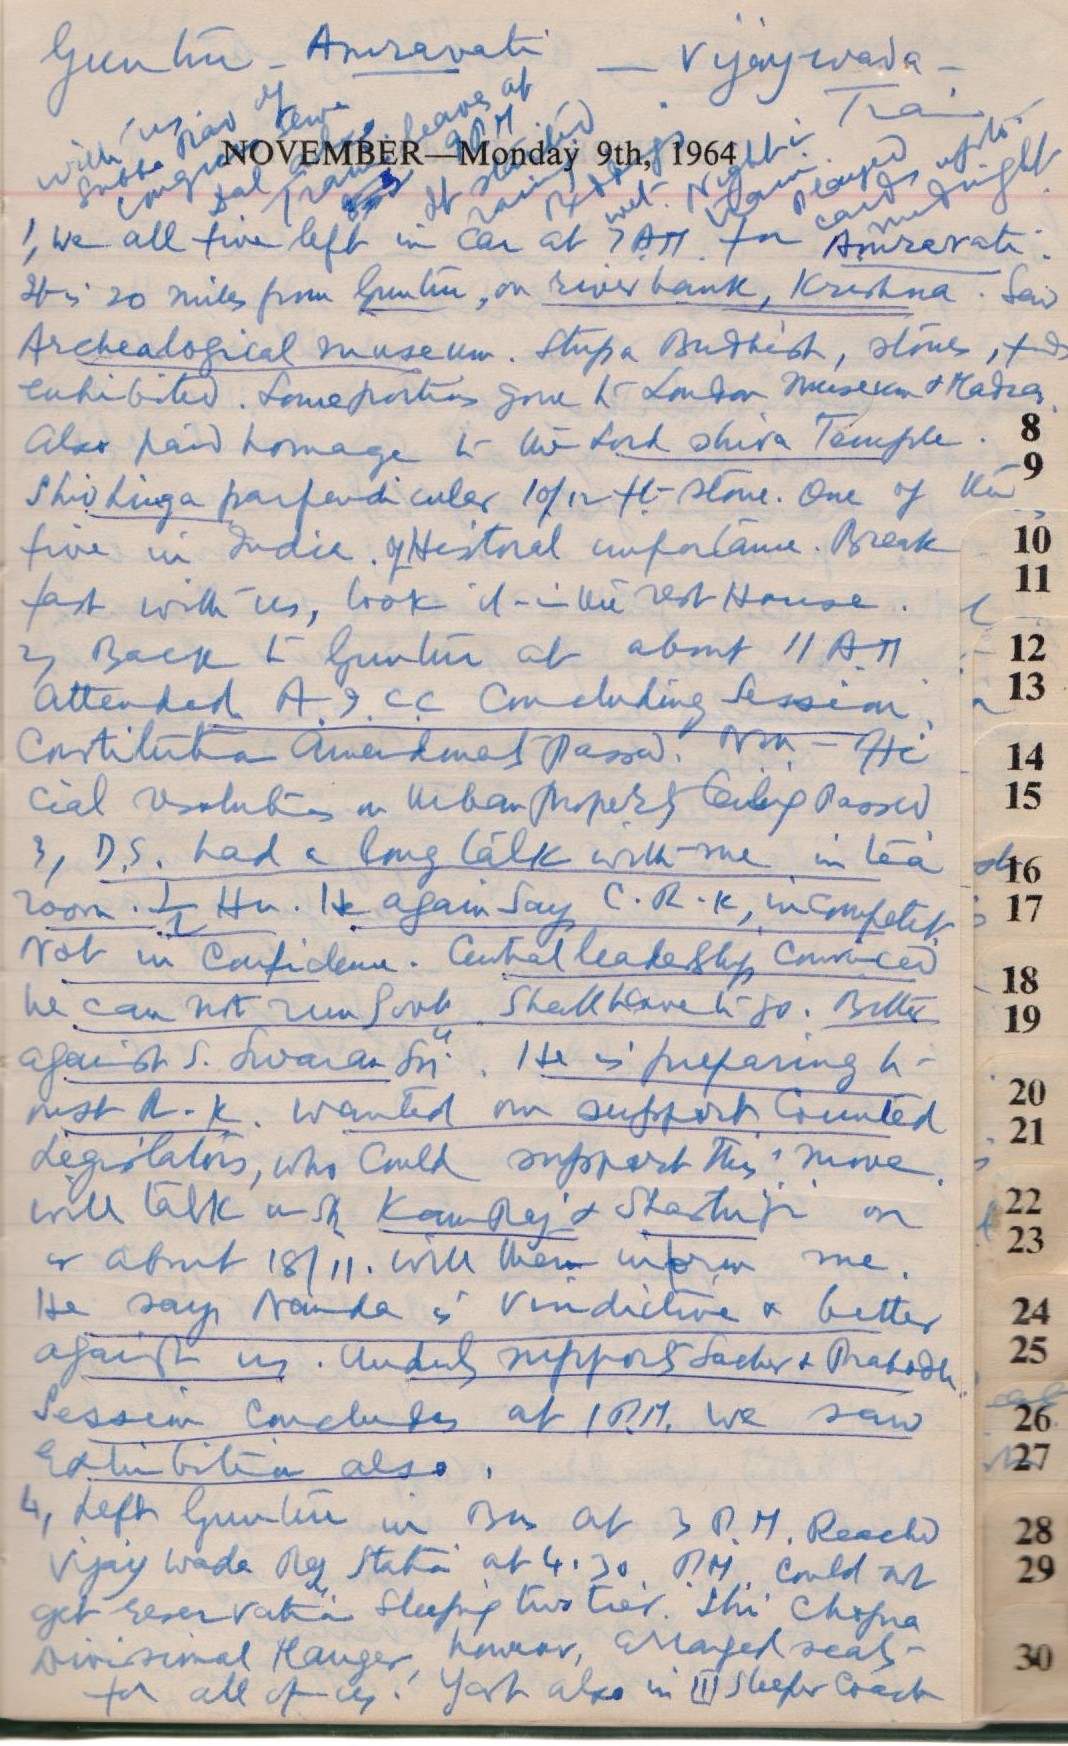 Guntur - Amravati - Vijaywada -
Train
with us
Subba Rao of
Congress Sewa
Dal also.
Train leaves at
9 PM
It started
raining
wet. Night in
train. Played
cards upto
midnight.
NOVEMBER—Monday 9th, 1964
1, we all five left in Car at 7 AM for Amravati.
It is 20 miles from Guntur, on river bank, Krishna. Saw
Archealogical museum. Stupa Budhist, stones,
exhibited. Some portions gone to London Museum & Madras.
Also paid homage to the Lord Shiva Temple.
Shivlinga parpendicular 10/12 ft stone. One of the
five in India. of Historal importance. Break
fast with us, took it in the rest House.
2, Back to Guntur at about 11 AM
attended A.I.C.C Concluding Session.
Constitution Amendment Passed. Non-Offi
cial resolution on Urban Property Ceiling Passed
3, D.S. had a long talk with me in tea
room. ½ Hr. He again Say C.R.K, incompetet.
Not in Confidence. Central leadership Convinced
he can not run Govt. Shall have to go. Bitter
against S. Swaran Sing. He is preparing to
oust R.K. wanted our support. Counted
Legislators, who Could support this move.
will talk with KamRaj & Shastriji on
or about 18/11. will then inform me.
He says Nanda is Vindictive & better
against us. Unduly supports Sachar & Prabodh.
Session Concludes at 1 P.M. We saw
Exhibition also.
4, Left Guntur in Bus at 3 P.M. Reached
Vijaywada Rly Station at 4.30 P.M. Could not
get reservation Sleeping two tier. Shri Chopra
Divisional Manger, however, arranged seats
for all of us. Yash also in III Sleeper Coach
8
9
10
11
12
13
14
15
16
17
18
19
20
21
22
23
24
25
26
27
28
29
30